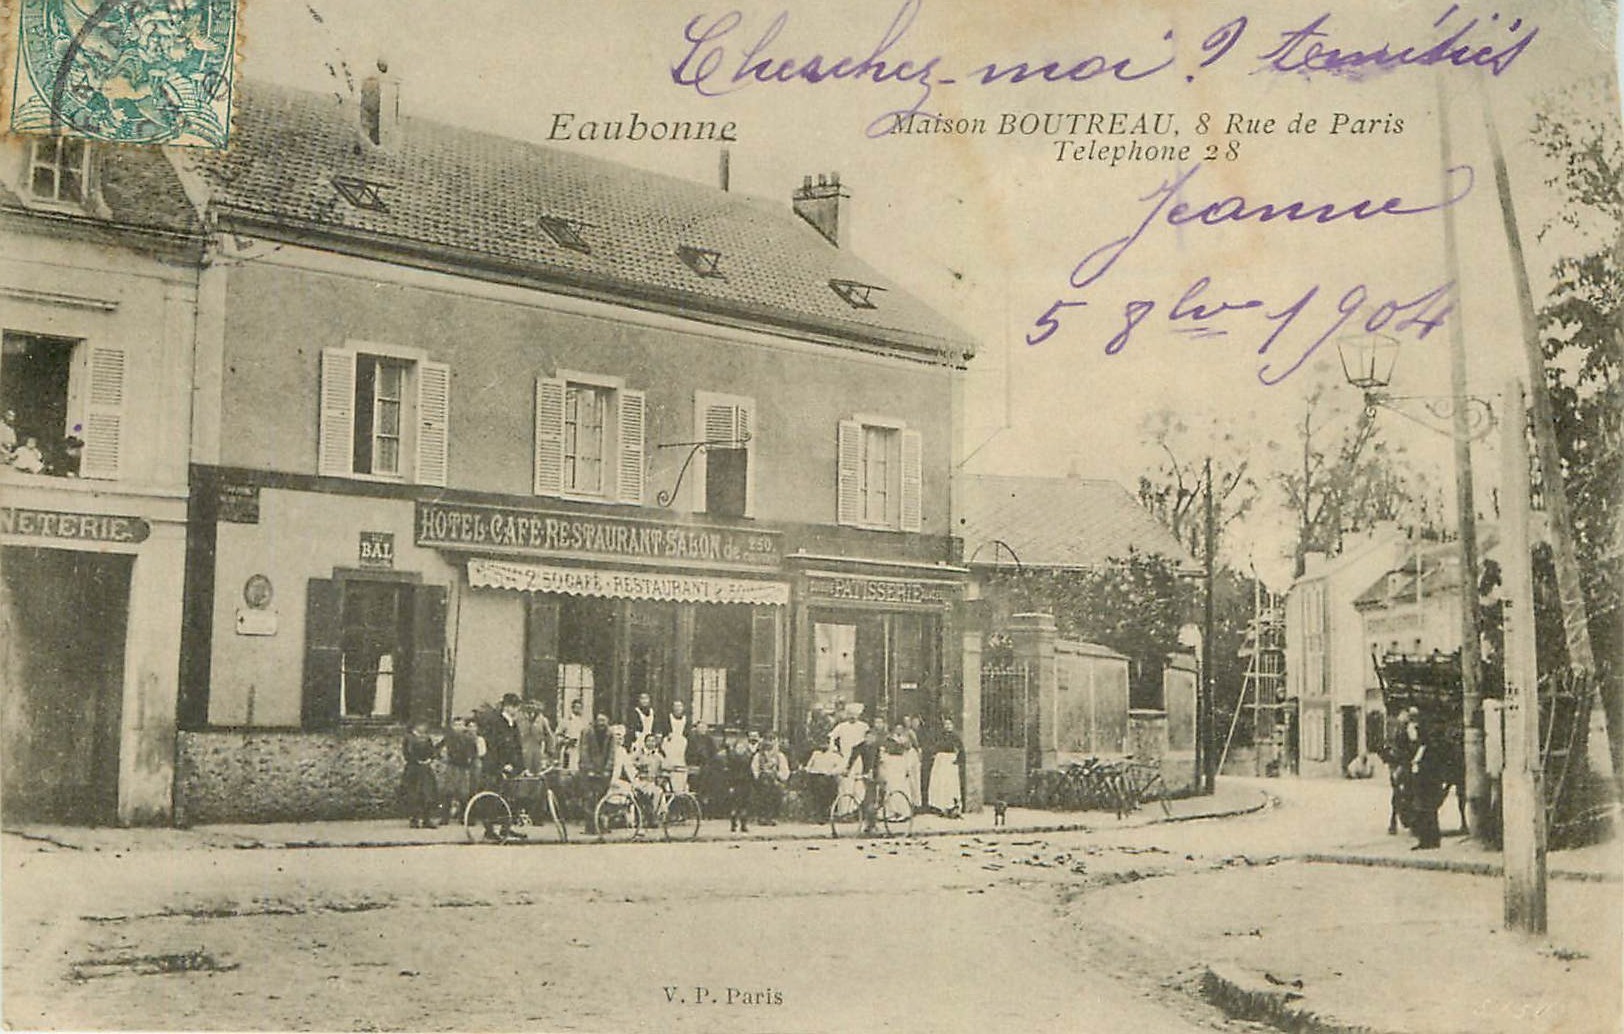 Cherchez-moi ?
Eaubonne
Maison BOUTREAU, 8 Rue de Paris
Telephone 28
Jeanne
5 8bre 1904
NETERIE
BAL
HOTEL-CAFÉ-RESTAURANT-SALON de 250
CAFÉ-RESTAURANT
PATISSERIE
V. P. Paris